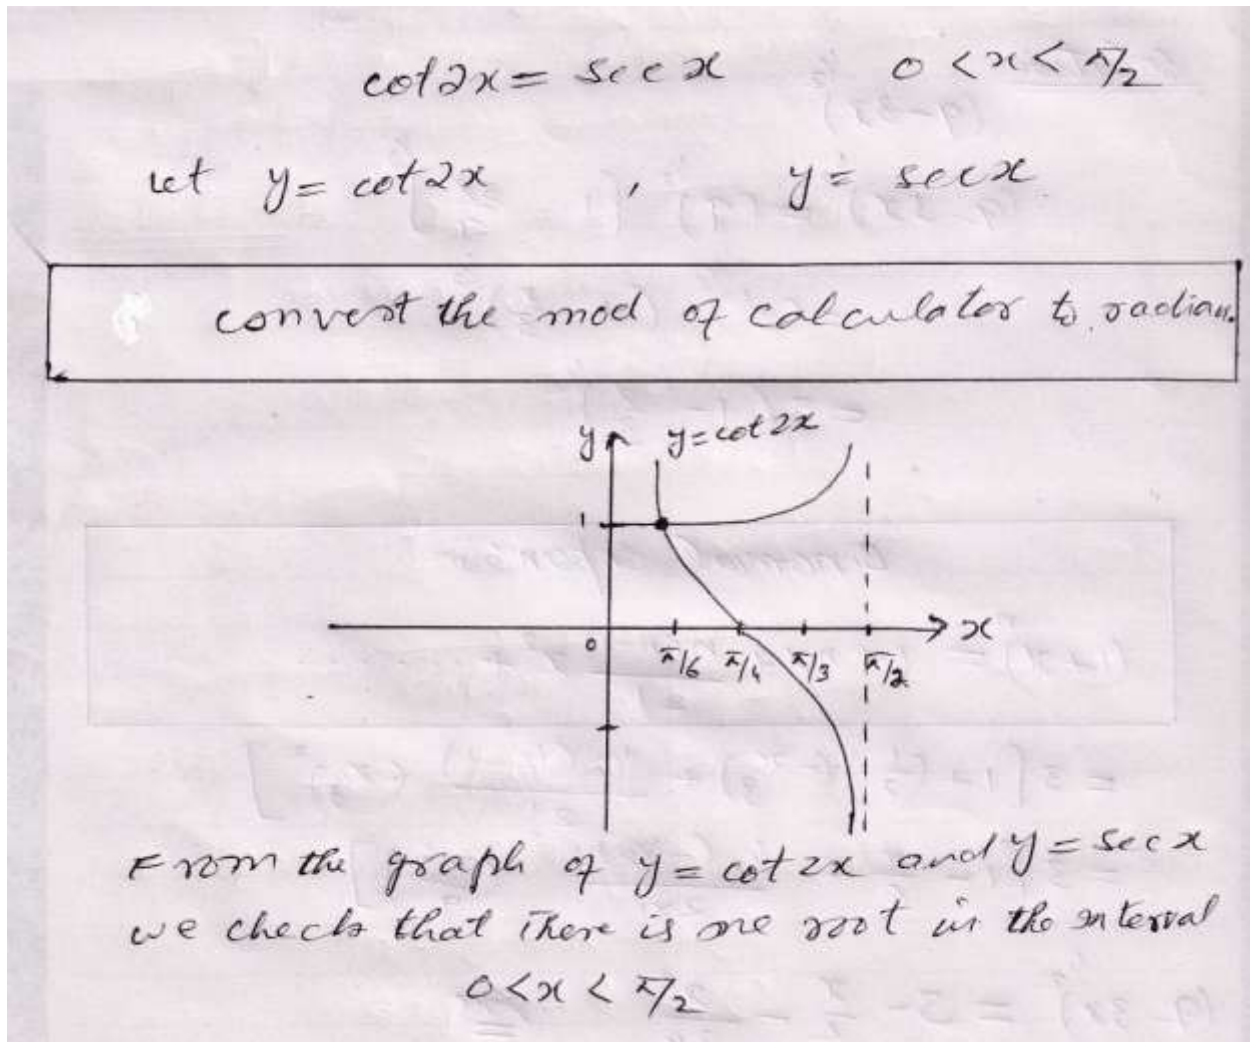 cot2x = secx 0 < x < π/2
Let y = cot2x , y = secx.
convert the mod of calculator to radian.
y y=cot2x
1
0 π/6 π/4 π/3 π/2 x
From the graph of y = cot2x and y = secx
we checks that There is one root in the interval
0<x < π/2